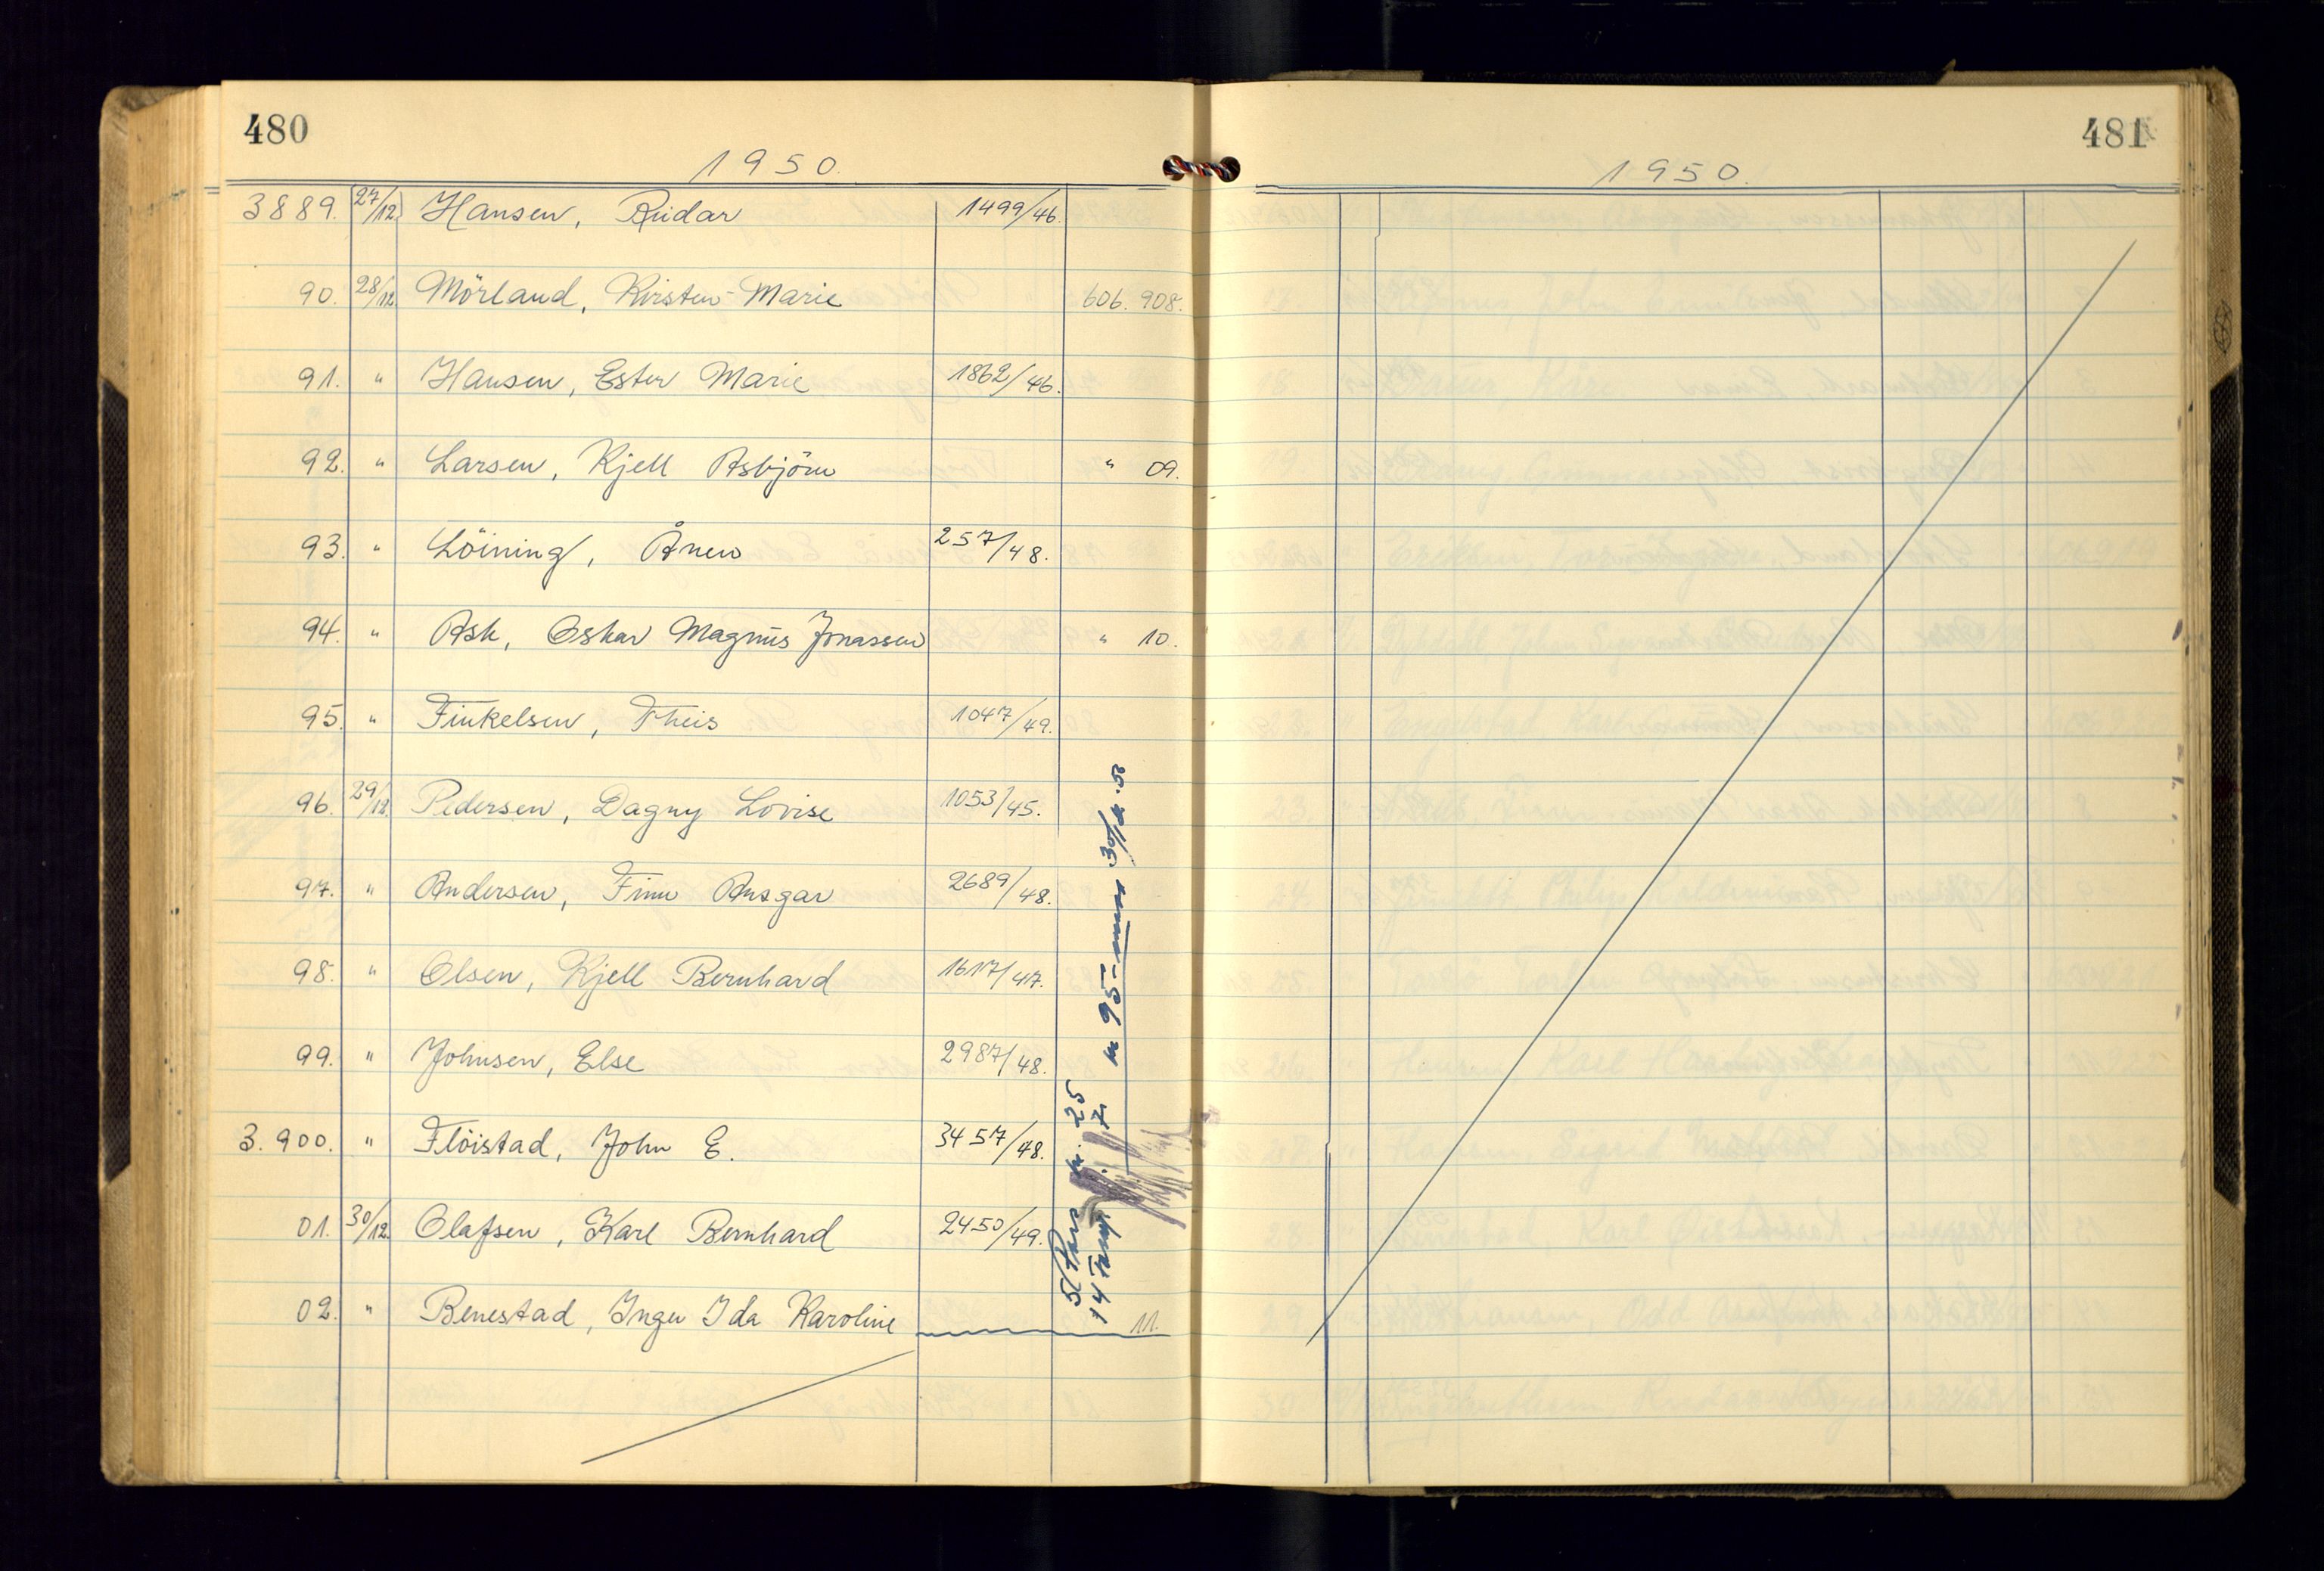 480
1950.
3889. 27/12. Hansen, Reidar 1499/46.
90. 28/12. Mörland, Kirsten Marie 606.908.
91. " Hansen, Ester Marie 1862/46.
92. " Larsen, Kjell Asbjörn " 09.
93. " Löining, Ånen 257/48.
94. " Ask, Oskar Magnus Jonassen " 10.
95. " Finkelsen, Theis 1047/49.
96. 29/12. Pedersen, Dagny Lovise 1053/45.
97. " Andersen, Finn Ansgar 2689/48.
98. " Olsen, Kjell Bernhard 1617/47.
99. " Johnsen, Else 2987/48.
3.900. " Flöistad, John E. 3457/48.
01. 30/12. Olafsen, Karl Bernhard 2450/49.
02. " Benestad, Inger Ida Karoline 11.
51 Pass kr. 25
14 7
kr 95- 30/12.50
481
1950.